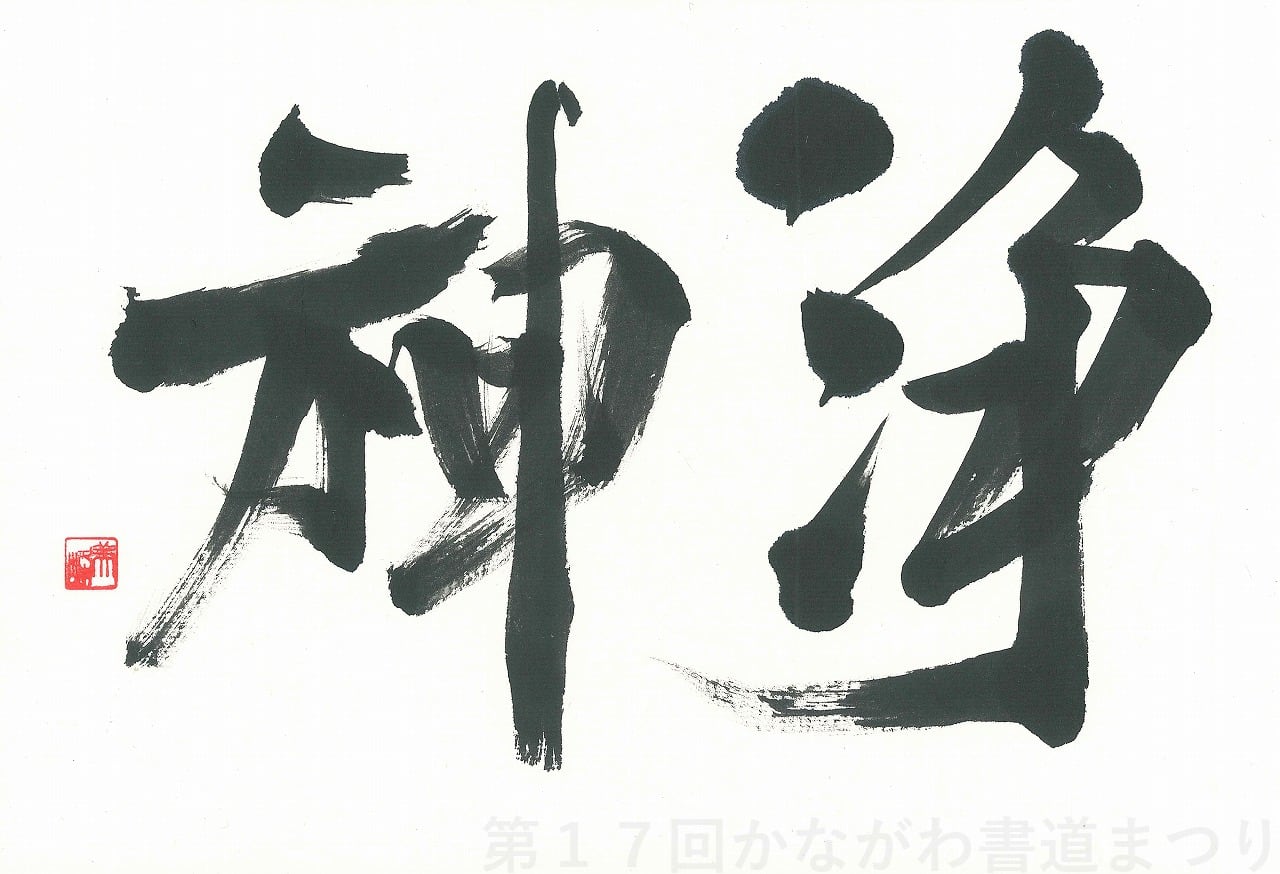 浄神
第１７回かながわ書道まつり